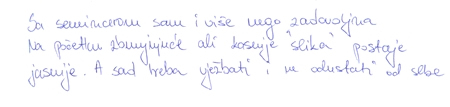 Sa seminarom sam i više nego zadovoljna
Na početku zbunjujuće ali kasnije "slika" postaje
jasnije. A sad treba "vježbati" i ne odustati od sebe